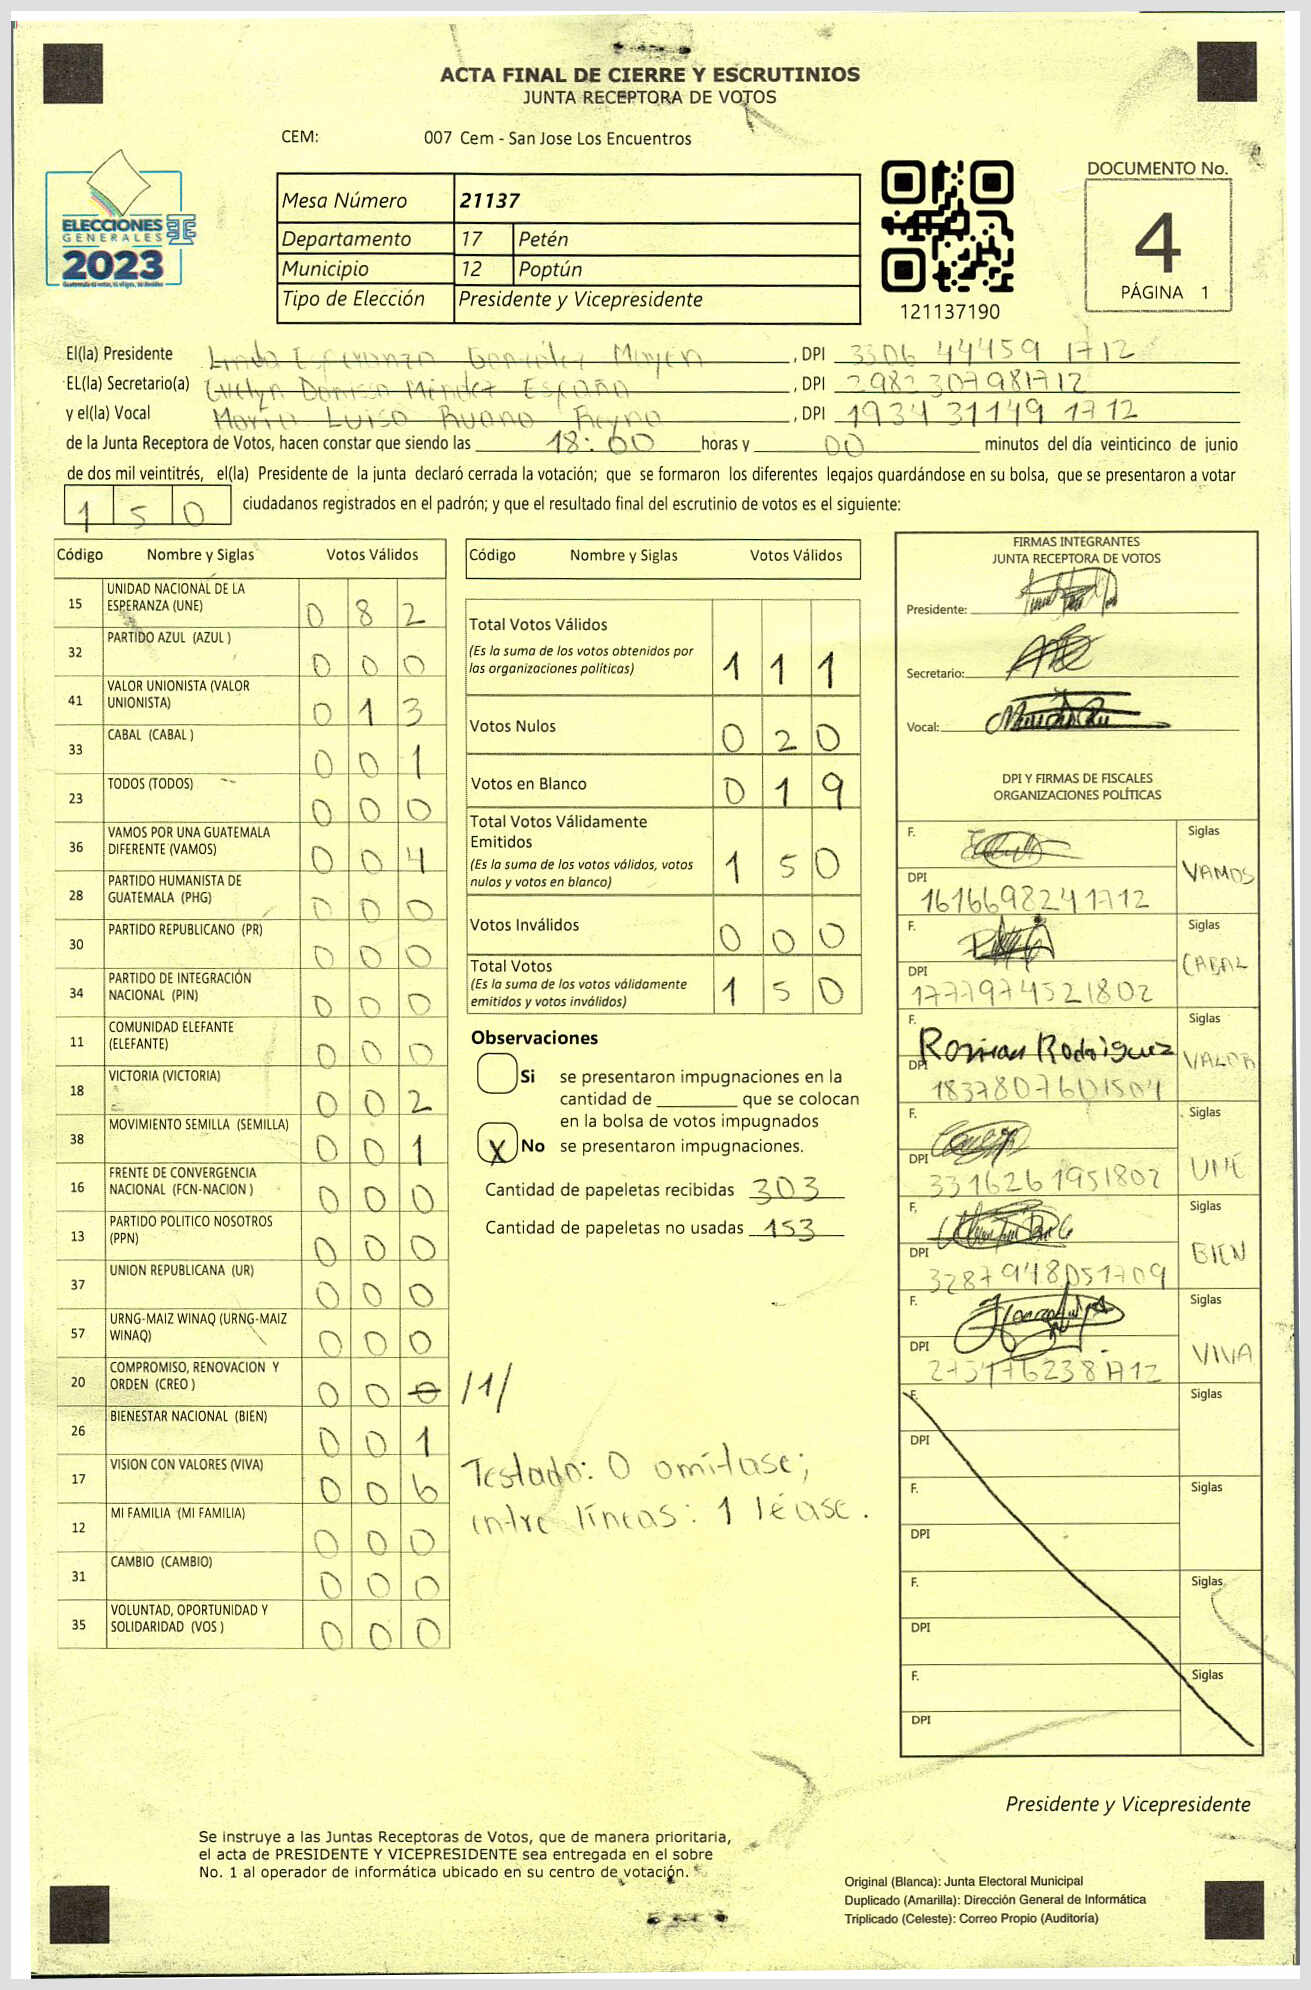 ACTA FINAL DE CIERRE Y ESCRUTINIOS
JUNTA RECEPTORA DE VOTOS
CEM: 007 Cem - San Jose Los Encuentros
ELECCIONES
GENERALES
2023
Mesa Número 21137
Departamento 17 Petén
Municipio 12 Poptún
Tipo de Elección Presidente y Vicepresidente
121137190
DOCUMENTO No.
4
PÁGINA 1
El(la) Presidente Linda Esperanza González Mayen, DPI 3306 44459 1712
EL(la) Secretario(a) Evelyn Danissa Méndez España, DPI 2982307981712
y el(la) Vocal María Luisa Ruano Reyna, DPI 1934 31149 1712
de la Junta Receptora de Votos, hacen constar que siendo las 18:00 horas y 00 minutos del día veinticinco de junio
de dos mil veintitrés, el(la) Presidente de la junta declaró cerrada la votación; que se formaron los diferentes legajos guardándose en su bolsa, que se presentaron a votar
150 ciudadanos registrados en el padrón; y que el resultado final del escrutinio de votos es el siguiente:
Código Nombre y Siglas Votos Válidos
15 UNIDAD NACIONAL DE LA ESPERANZA (UNE) 0 8 2
32 PARTIDO AZUL (AZUL ) 0 0 0
41 VALOR UNIONISTA (VALOR UNIONISTA) 0 1 3
33 CABAL (CABAL ) 0 0 1
23 TODOS (TODOS) 0 0 0
36 VAMOS POR UNA GUATEMALA DIFERENTE (VAMOS) 0 0 4
28 PARTIDO HUMANISTA DE GUATEMALA (PHG) 0 0 0
30 PARTIDO REPUBLICANO (PR) 0 0 0
34 PARTIDO DE INTEGRACIÓN NACIONAL (PIN) 0 0 0
11 COMUNIDAD ELEFANTE (ELEFANTE) 0 0 0
18 VICTORIA (VICTORIA) 0 0 2
38 MOVIMIENTO SEMILLA (SEMILLA) 0 0 1
16 FRENTE DE CONVERGENCIA NACIONAL (FCN-NACION ) 0 0 0
13 PARTIDO POLITICO NOSOTROS (PPN) 0 0 0
37 UNION REPUBLICANA (UR) 0 0 0
57 URNG-MAIZ WINAQ (URNG-MAIZ WINAQ) 0 0 0
20 COMPROMISO, RENOVACION Y ORDEN (CREO ) 0 0 0 /1/
26 BIENESTAR NACIONAL (BIEN) 0 0 1
17 VISION CON VALORES (VIVA) 0 0 6
12 MI FAMILIA (MI FAMILIA) 0 0 0
31 CAMBIO (CAMBIO) 0 0 0
35 VOLUNTAD, OPORTUNIDAD Y SOLIDARIDAD (VOS ) 0 0 0
Código Nombre y Siglas Votos Válidos
Total Votos Válidos 1 1 1
(Es la suma de los votos obtenidos por
las organizaciones políticas)
Votos Nulos 0 2 0
Votos en Blanco 0 1 9
Total Votos Válidamente
Emitidos 1 5 0
(Es la suma de los votos válidos, votos
nulos y votos en blanco)
Votos Inválidos 0 0 0
Total Votos 1 5 0
(Es la suma de los votos válidamente
emitidos y votos inválidos)
Observaciones
Si se presentaron impugnaciones en la
cantidad de ________ que se colocan
en la bolsa de votos impugnados
X No se presentaron impugnaciones.
Cantidad de papeletas recibidas 303
Cantidad de papeletas no usadas 153
Testado: 0 omítase;
entre líneas: 1 léase.
FIRMAS INTEGRANTES
JUNTA RECEPTORA DE VOTOS
Presidente:
Secretario:
Vocal:
DPI Y FIRMAS DE FISCALES
ORGANIZACIONES POLÍTICAS
F. Siglas VAMOS
DPI 1616698241712
F. Siglas CABAL
DPI 1777974521802
F. Roman Rodriguez Siglas VALOR
DPI 1837807601504
F. Siglas UNE
DPI 3316261951802
F. Siglas BIEN
DPI 3287948051709
F. Siglas VIVA
DPI
F. Siglas
DPI
F. Siglas
DPI
F. Siglas
DPI
F. Siglas
DPI
Presidente y Vicepresidente
Se instruye a las Juntas Receptoras de Votos, que de manera prioritaria,
el acta de PRESIDENTE Y VICEPRESIDENTE sea entregada en el sobre
No. 1 al operador de informática ubicado en su centro de votación.
Original (Blanca): Junta Electoral Municipal
Duplicado (Amarilla): Dirección General de Informática
Triplicado (Celeste): Correo Propio (Auditoría)